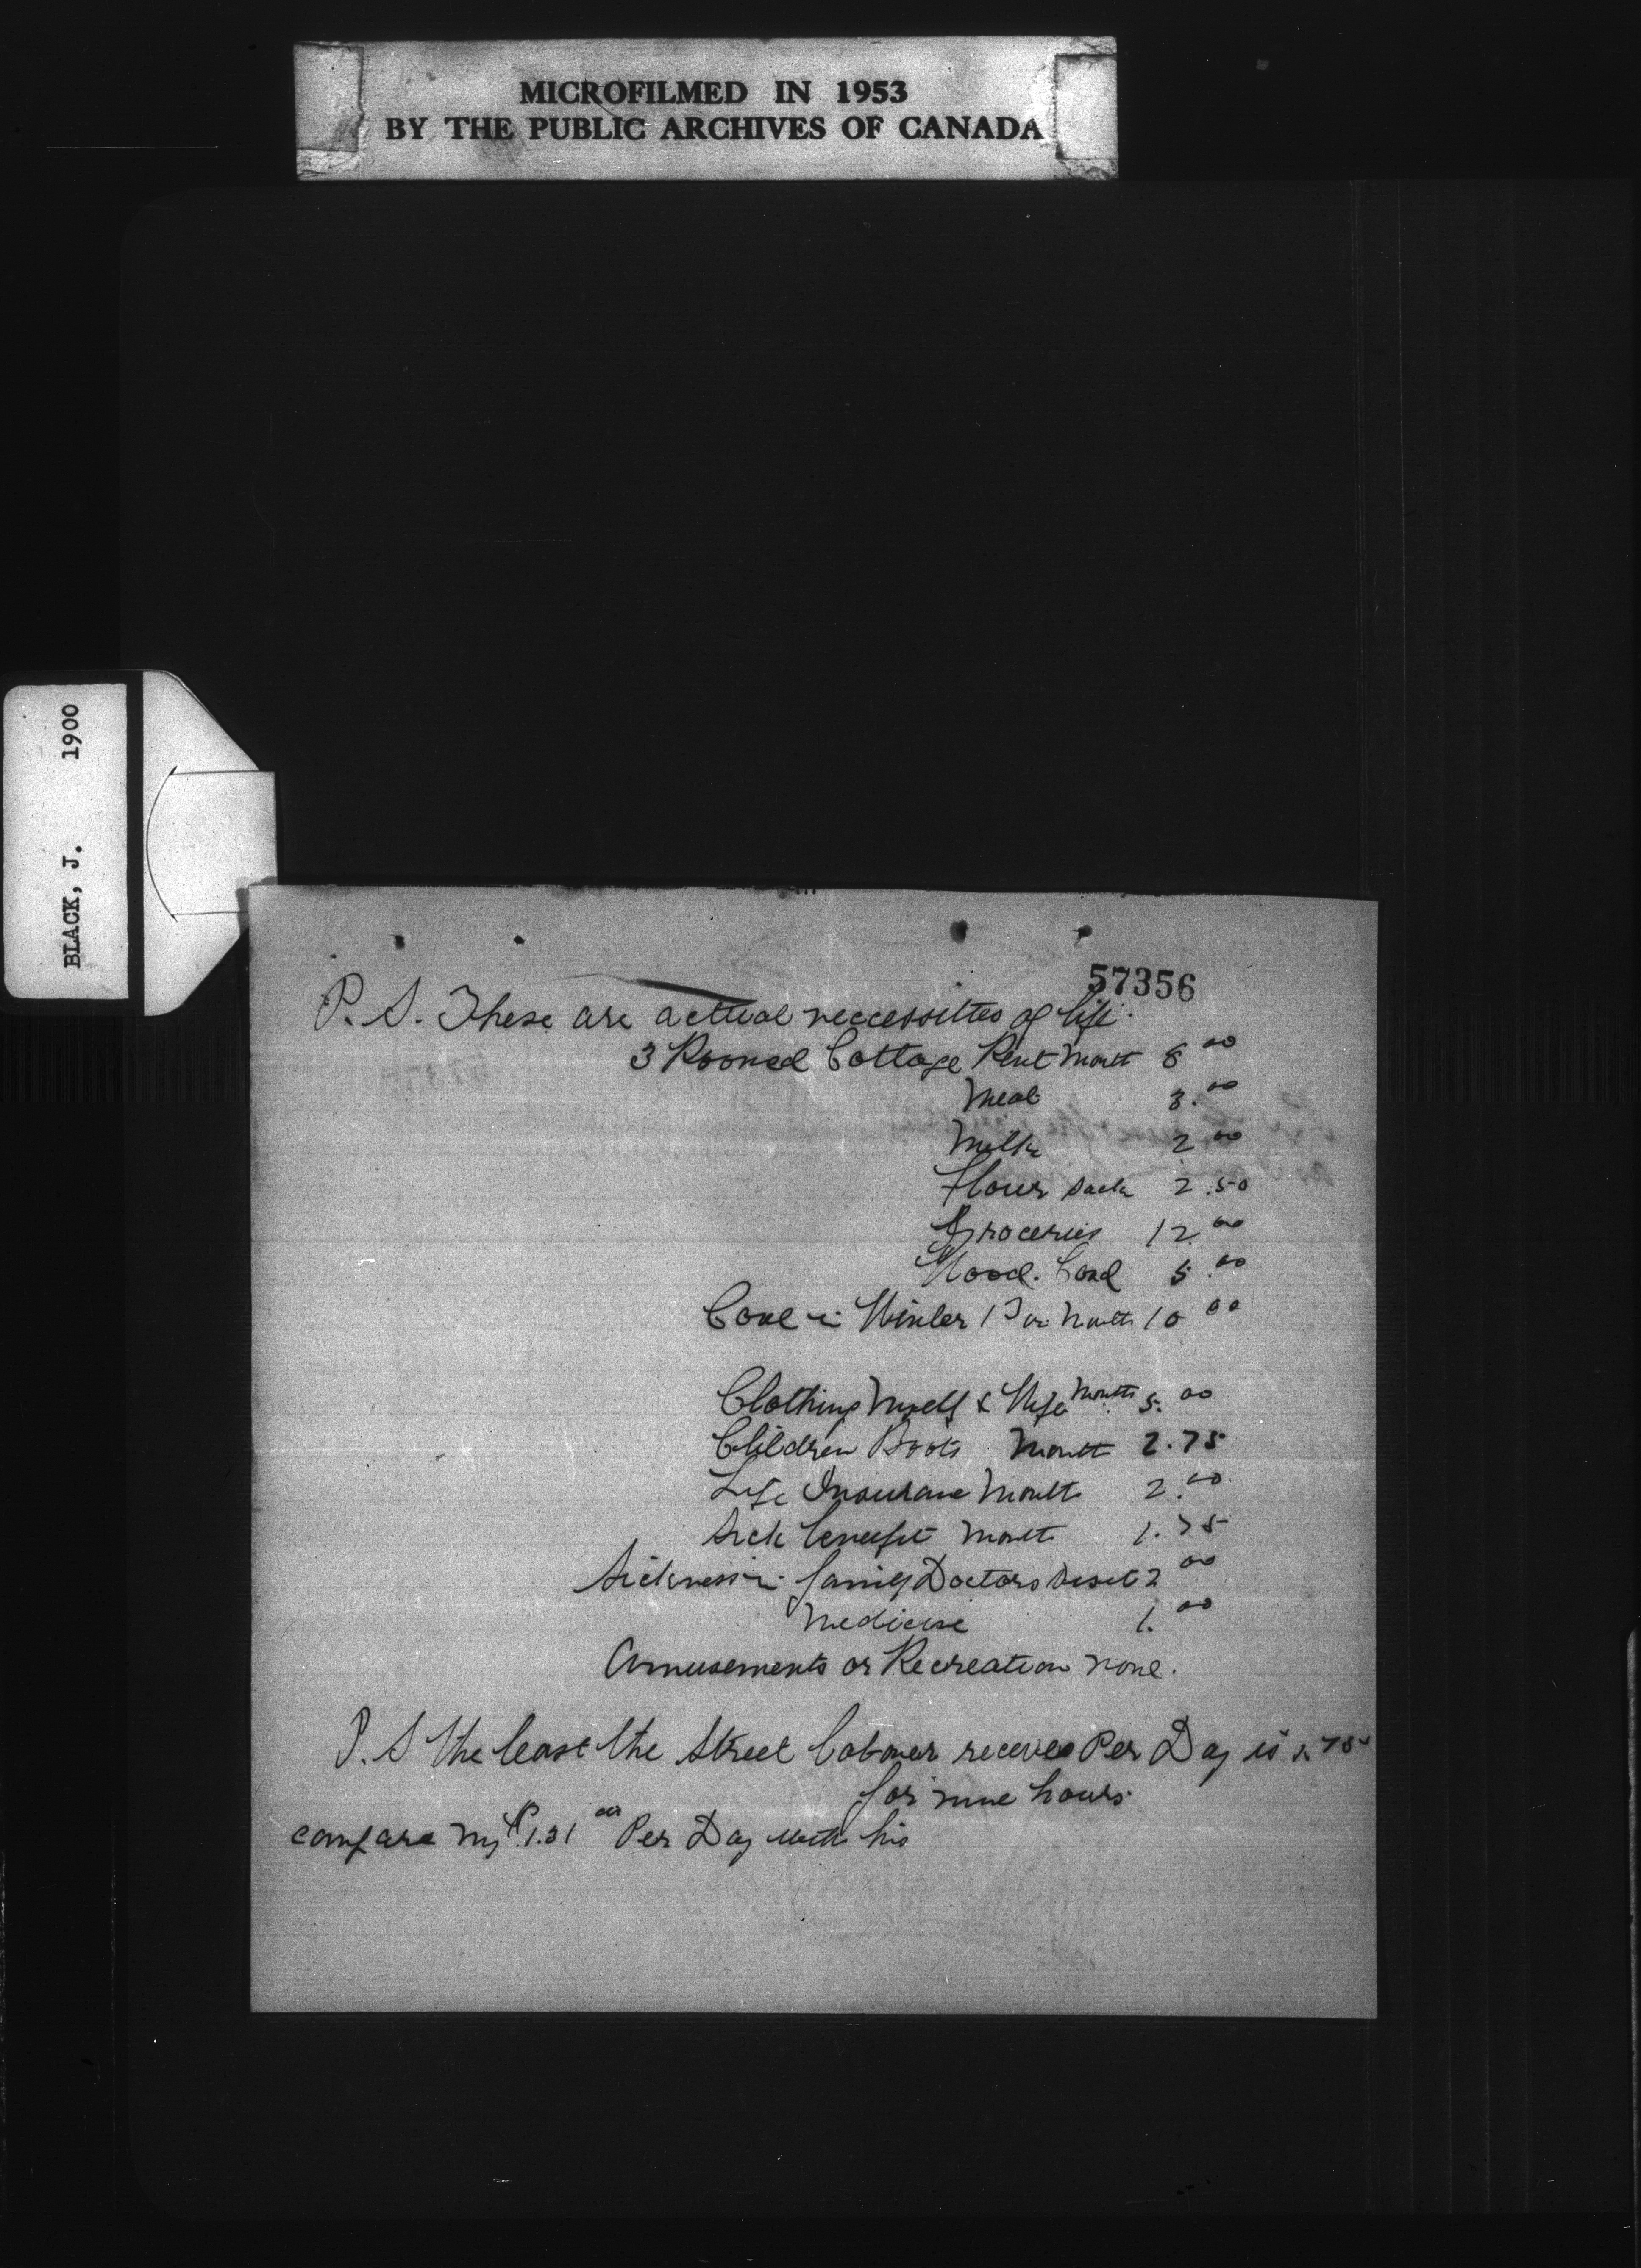 MICROFILMED IN 1953
BY THE PUBLIC ARCHIVES OF CANADA
BLACK, J. 1900
57356
P. S. These are actual neccessittes of life.
3 Roomed Cottage Rent Month 8 00
Meat 3.00
Milk 2 00
Flour sack 2.50
Groceries 12 00
Wood. Cord 5.00
Coal in Winter 1 Ton Month 10 00
Clothing Myself & Wife Month 5.00
Children Boots Month 2.75
Life Insurance Month 2.00
Sick benefit Month 1.75
Sickness in family Doctors Visit 2 00
Medicine 1.00
Amusements or Recreation none.
P. S the least the Street Labourer receives Per Day is
for nine hours.
compare my $1.31 Per Day with his